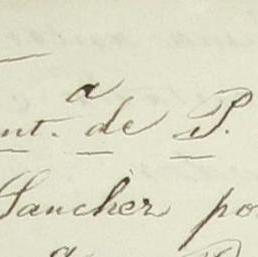 a
nt. de P.
Sancher po
a